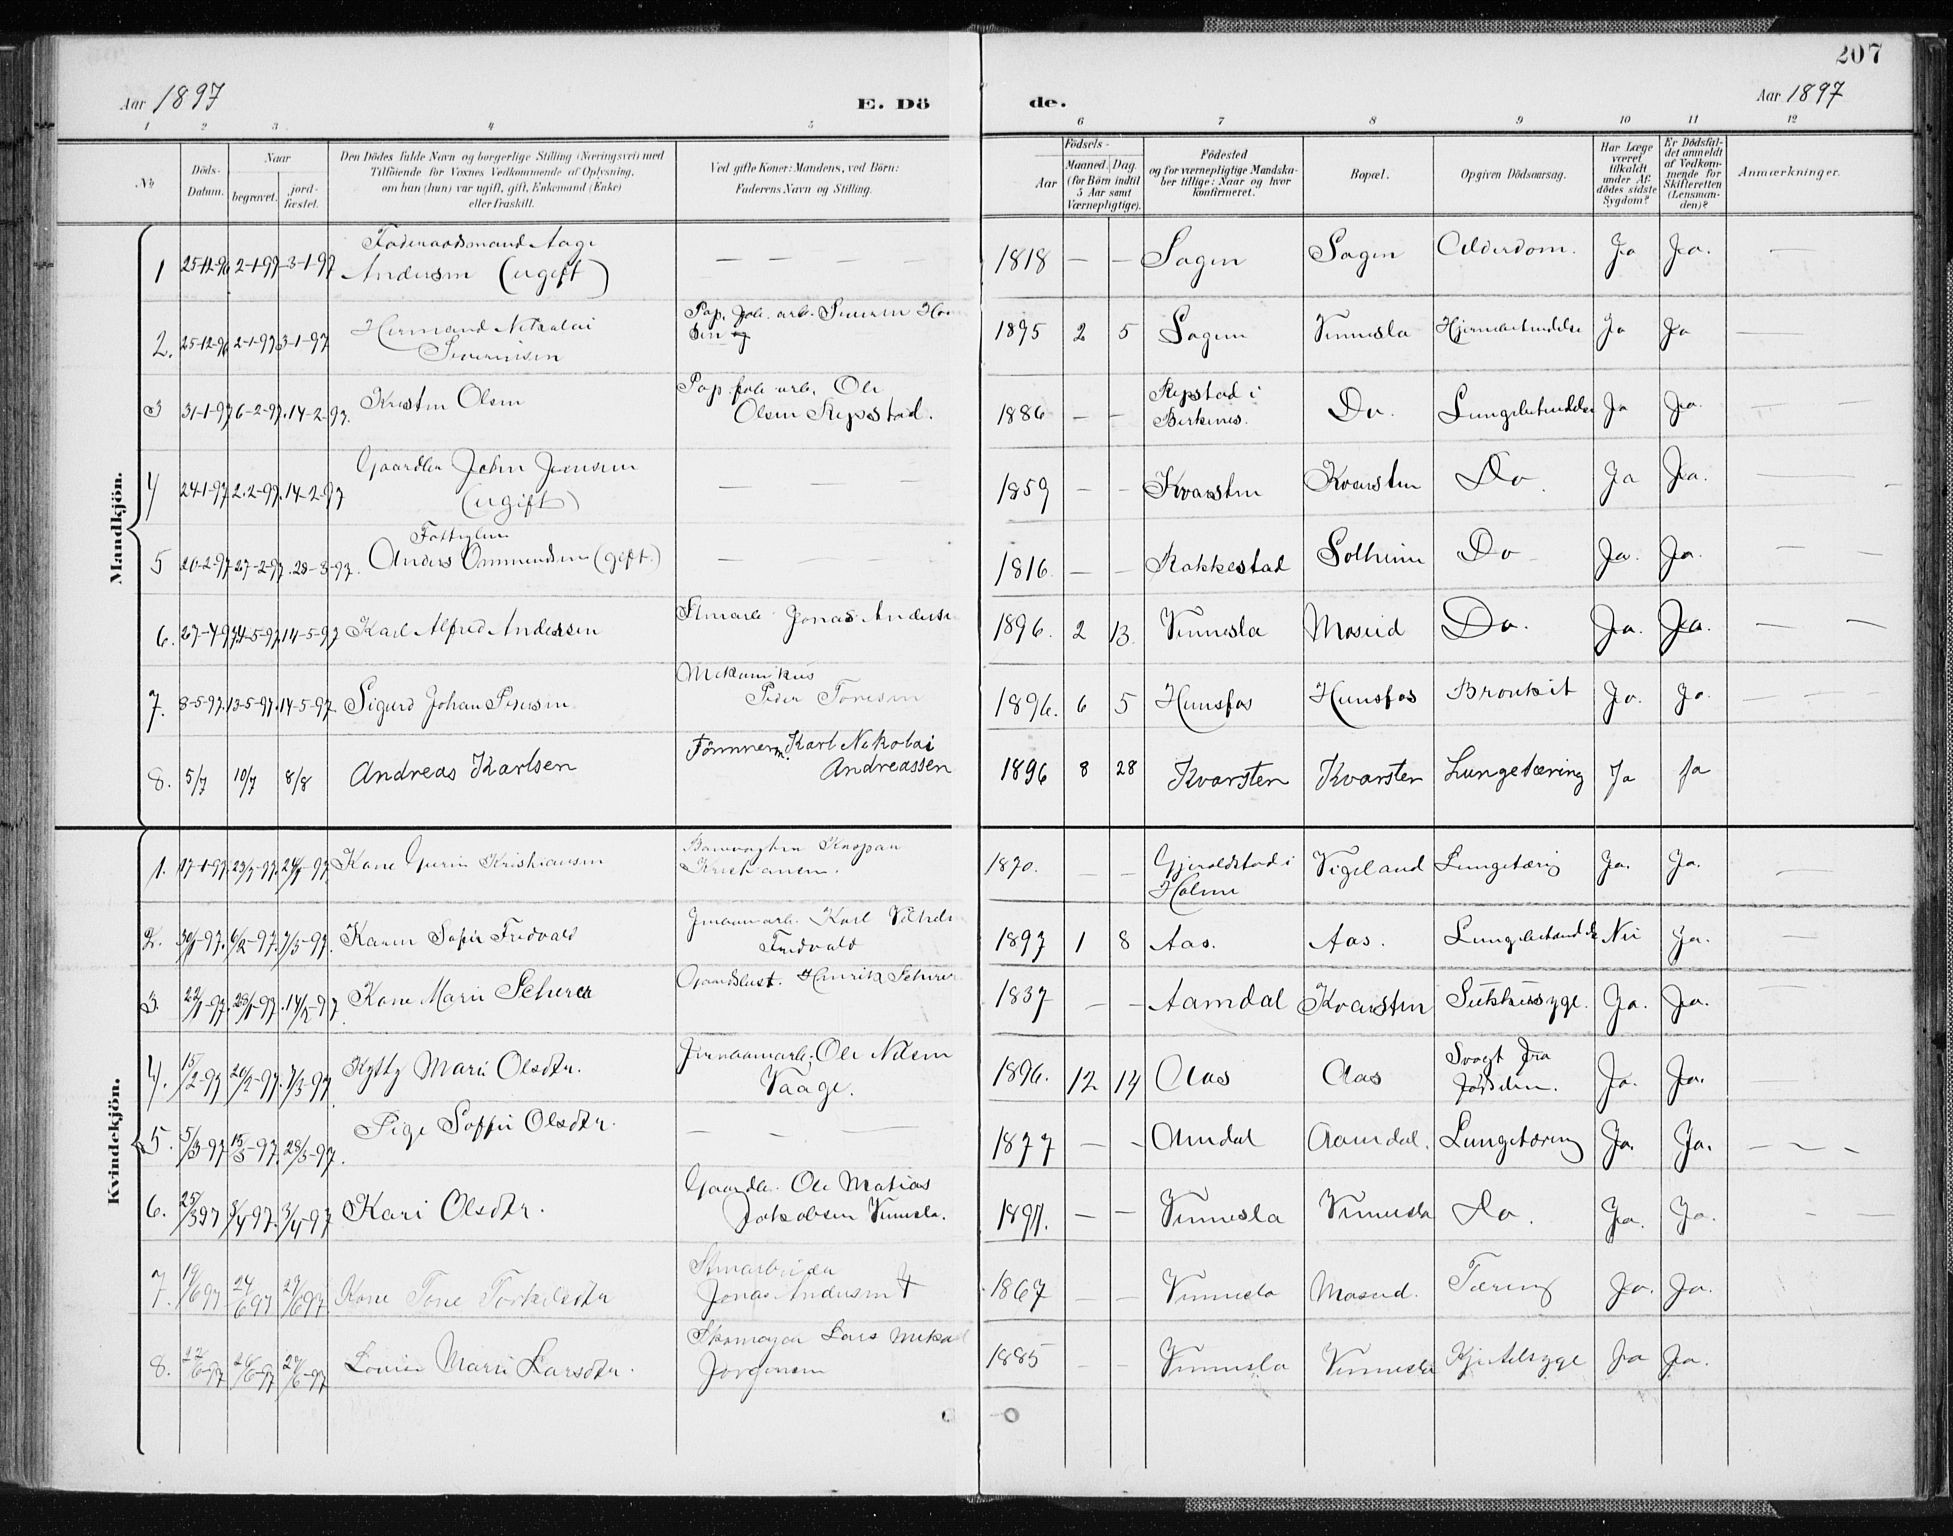 207
Aar 1897 E. Dö de. Aar 1897
1 2 3 4 5 6 7 8 9 10 11 12
№ Döds-Datum. Naar begravet. jord-fæstet. Den Dödes fulde Navn og borgerlige Stilling (Næringsvei) med Tilföiende for Voxnes Vedkommende af Oplysning, om han (hun) var ugift, gift, Enkemand (Enke) eller fraskilt. Ved gifte Koner: Mandens, ved Börn: Faderens Navn og Stilling. Födsels- Aar Maaned. Dag. (for Börn indtil 5 Aar samt Værnepligtige). Födested og for værnepligtige Mandskaber tillige: Naar og hvor konfirmeret. Bopæl. Opgiven Dödsaarsag. Har Læge været tilkaldt under Afdödes sidste Sygdom? Er Dödsfaldet anmeldt af Vedkommende for Skifteretten (Lensmanden)? Anmærkninger.
Mandkjön.
1 25-12-96 2-1-97 3-1-97 Føderaadsmand Aage Andersen (ugift) — — — — 1818 — — Sagen Sagen Alderdom. Ja Ja. —
2. 25-12-96 2-1-97 3-1-97 Hermand Nikolai Severinsen Pap. fab. arb. Severin Han sen 1895 2 5 Sagen Vennesla Hjernebetændelse Ja Ja —
3 31-1-97 6-2-97. 14-2-97. Kristen Olsen Pap. fab. arb. Ole Olsen Repstad. 1886 — — Repstad i Birkenes. Do. Lungebetændelse Ja Ja. —
4 24-1-97 2-2-97. 14-2-97 Gaardbr. John Jensen (ugift) — — — 1859 — — Kvarsten Kvarsten Do Ja Ja. —
5 20-2-97 27-2-97. 28-3-97. Fattiglem Anders Ommundsen (gift.) — — — 1816. — — Rakkestad Solheim Do Ja. Ja. — —
6. 27-4-97 14-5-97 14-5-97 Karl Alfred Andersen Stenarb. Jonas Anderse 1896. 2 13. Vennesla Moseid Do. Ja. Ja. — —
7. 8-5-97. 13-5-97. 14-5-97 Sigurd Johan Pedersen Mekanikus Peder Torresen 1896. 6 5 Hunsfos Hunsfos Bronkit Ja. Ja — — —
8. 5/7 10/7 8/8 Andreas Karlsen Tömmerm. Karl Nikolai Andreassen 1896 8 28 Kvarsten Kvarsten Lungetæring Ja Ja
Kvindekjön.
1. 17-1-97. 23/1-97. 24/1-97. Kone Gurin Kristiansen Banevogter Kaspar Kristiansen. 1870. — — Gjeraldstad i Holme Vigeland Lungetæring Ja. Ja. —
2. 30/1-97. 6/2-97. 7/3-97. Karen Sofie Fredvald Jernbanearb. Karl Vilhelm Fredvald 1897 1 8 Aas. Aas. Lungebetændelse Nei Ja. —
3. 22/1-97. 29/1-97. 14/2-97 Kone Marie Scherer Gaardbest. Henrik Scherer 1837 — — Aamdal Kvarsten Sukkersyge. Ja. Ja. —
4. 15/2-97 20/2-97. 7/3-97 Kytty Marie Olsdtr. Jernbanearb. Ole Nilsen Vaage. 1896. 12 14 Aas Aas Svagt fra Födselen. Ja. Ja. —
5. 5/3-97 15/3-97. 28/3-97. Pige Soffie Olsdtr. — — — 1877 — — Amdal Aamdal. Lungetæring Ja. Ja. — — —
6. 25/3 97 3/4-97. 3/4-97 Kari Olsdtr. Gaardbr. Ole Matias Jakobsen Vennesla. 1891. — — Vennesla Vennesla Do. Ja. Ja. — —
7. 19/6 97 24/6 97 29/6 97 Kone Tone Torkelsdtr Stenarbeider Jonas Andersen 1867 — — Vennesla Moseid. Tæring Ja. Ja. —
8. 22/6-97 26/6-97 27/6-97 Lovise Marie Larsdtr. Skomager Lars Mikael Jörgensen 1885 — — Vennesla Vennesla Kjertelsyge Ja Ja. —